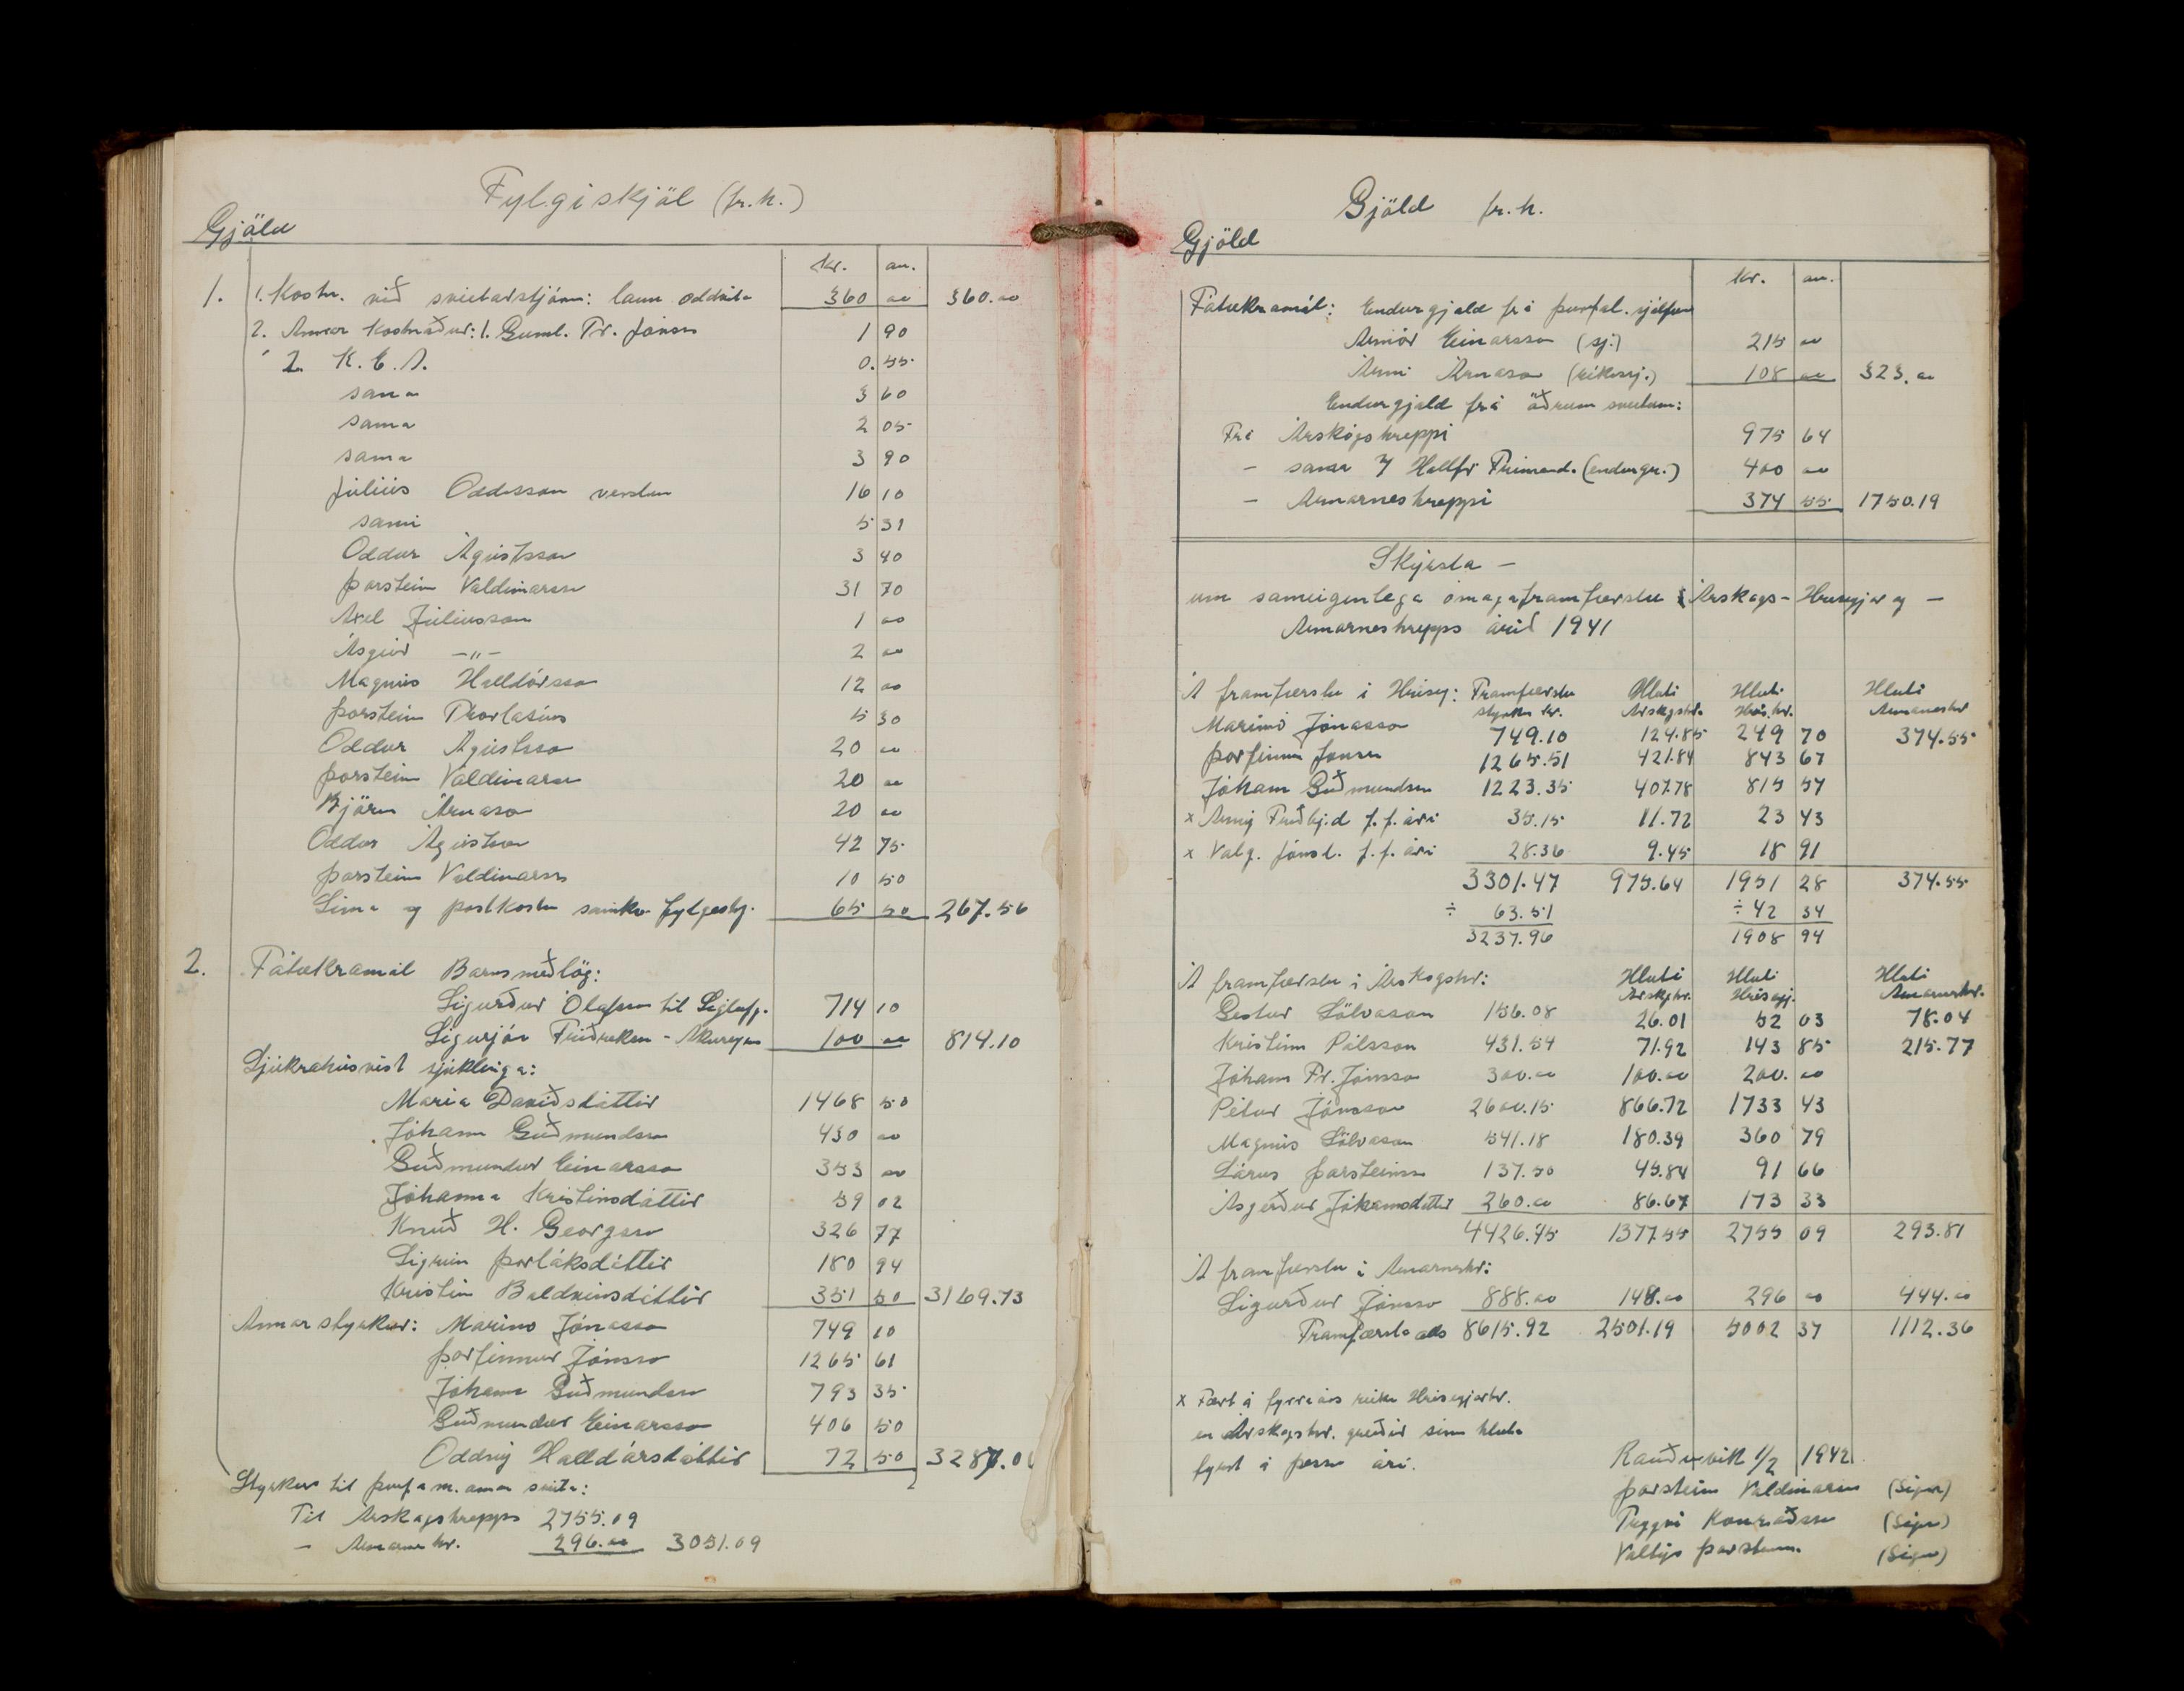 Fylgiskjöl (fr.h.)
Gjöld
kr. au.
1. 1. Kostn. við sveitarstjórn: laun oddvita 360 00 360.00
2. Annar kostnaður: 1. Guml. Tr. Jónsson 1 90
2. K. E. A. 0.55
sama 3 60
sama 2 05
sama 3 90
Júlíus Oddsson verslun 16 10
sami 5 31
Oddur Ágústsson 3 40
Þorsteinn Valdimarsson 31 70
Axel Júliusson 1 00
Ásgeir -"- 2 00
Magnús Halldórsson 12 00
Þorsteinn Thorlasíus 5 30
Oddur Ágústsson 20 00
Þorsteinn Valdimarsson 20 00
Björn Árnason 20 00
Oddur Ágústsson 42 75
Þorsteinn Valdimarsson 10 50
Síma og postkostn samkv fylgeskj. 65 50 267.56
2. Fátækramál Barnsmeðlög:
Sigurður Ólafsson til Siglufj. 714 10
Sigurjón Friðriksson - Akureyrar 100 00 814.10
Sjúkrahúsvist sjúklinga:
María Davíðsdóttir 1468 50
Jóhann Guðmundsson 430 00
Guðmundur Einarsson 353 00
Jóhanna Kristinsdóttir 59 02
Knud H. Georgsson 326 77
Sigrún Þorláksdóttir 180 94
Kristín Baldvinsdóttir 351 50 3169.73
Annar styrkur: Marinó Jónasson 749 10
Þorfinnur Jónsson 1265 61
Jóhann Guðmundsson 793 35
Guðmundur Einarsson 406 50
Oddný Halldórsdóttir 72 50 3287.0
Styrkur til þurfa m. anar sveita:
Til Árskógshrepps 2755.09
- Arnarnehr. 296.00 3051.09
Gjöld fr.h.
Gjöld
kr. au.
Fátækramál: Endurgjald frá þurfal. sjálfum
Arnór Einarsson (sj.) 215 00
Árni Árnason (ríkissj.) 108 00 323.00
Endurgjald frá öðrum sveitum:
Frá Árskógshreppi 975 64
- sama v/ Hallfr (endurgr.) 400 00
- Arnarneshreppi 374 55 1750.19
Skýrsla -
um sameigenlega ómagaframfærslu Árskógs- Hríseyjar og -
Arnarneshrepps árið 1941
Á framfærslu í Hrísey: Framfærslu styrkur kr. Hluti Árskgshr. Hluti Hrís.hr. Hluti Arnaneshr
Marinó Jónasson 749.10 124.85 249 70 374.55
Þorfinnur Jónsson 1265.51 421.84 843 67
Jóhann Guðmundsson 1223.35 407.78 815 57
x Arný Friðbj.d f.f. ári 35.15 11.72 23 43
x Valg. Jónsd. f.f. ári 28.36 9.45 18 91
3301.47 975.64 1951 28 374.55
÷ 63.51 ÷ 42 34
3237.96 1908 94
Á framfærslu í Árskógshr: Hluti Árskghr. Hluti Hríseyj. Hluti Arnarneshr.
Gestur Sölvason 156.08 26.01 52 03 78.04
Kristinn Pálsson 431.54 71.92 143 85 215.77
Jóhann Fr. Jónsson 300.00 100.00 200. 00
Pétur Jónsson 2600.15 866.72 1733 43
Magnús Sölvason 541.18 180.39 360 79
Lárus Þorsteinsson 137.50 45.84 91 66
Ásgerður Jóhannsdóttir 260.00 86.67 173 33
4426.45 1377.55 2755 09 293.81
Á framfærslu í Arnarneshr:
Sigurður Jónsson 888.00 148.00 296 00 444.00
Framfærsla alls 8615.92 2501.19 5002 37 1112.36
x Fært á fyrra árs reikn Hríseyjarhr.
en Árskógshr. greiðir sinn hluta
fyrst á þessu ári.
Rauðuvík 1/2 1942
Þorsteinn Valdimarsson (Sign)
Tryggvi Konráðsson (Sign)
Valtýr Þorsteinss. (Sign)